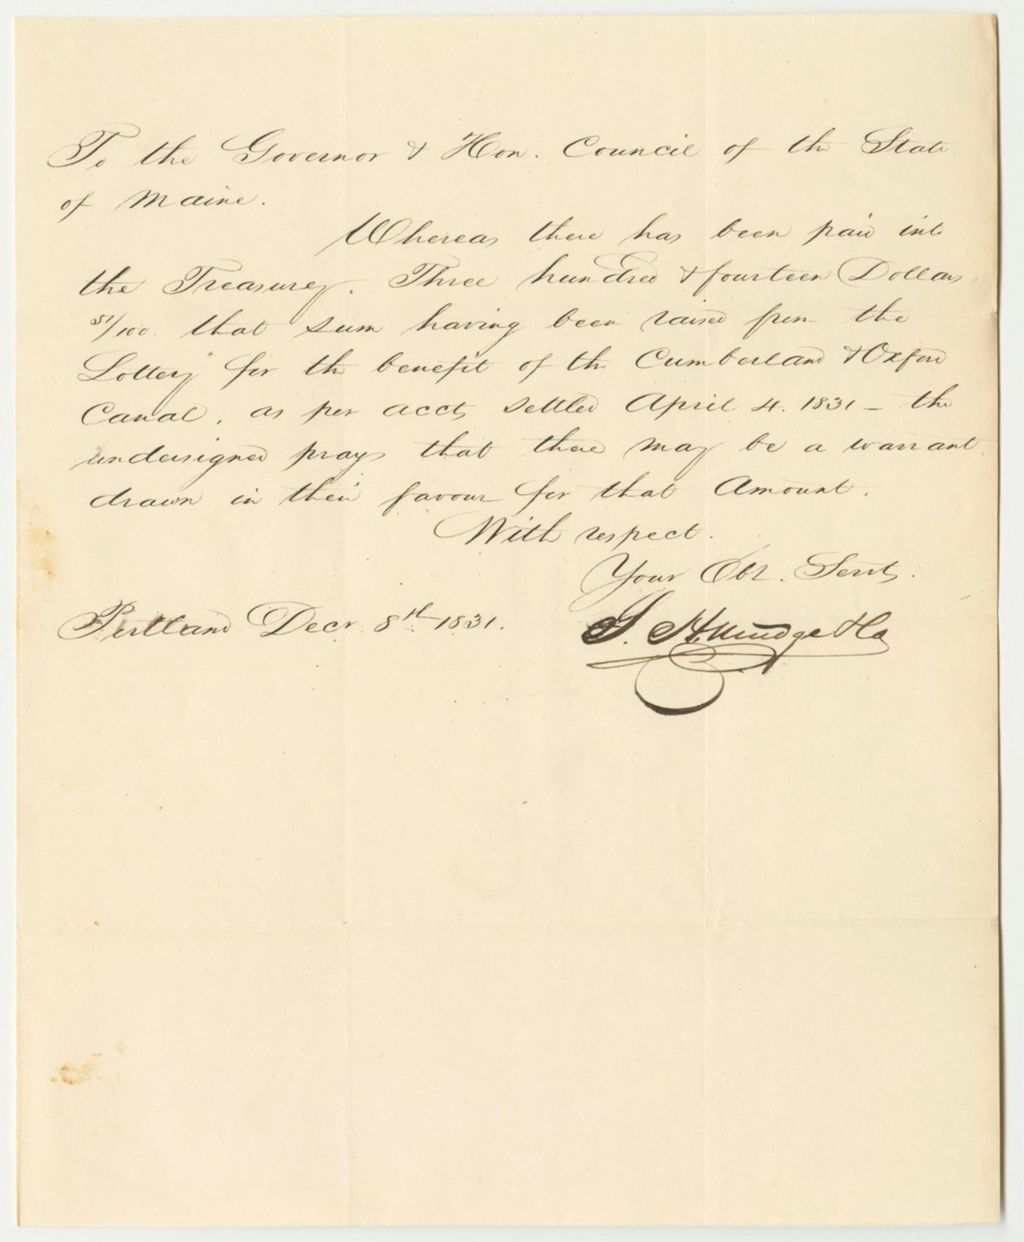 To the Governor & Hon. Council of the State
of Maine.
Whereas there has been paid into
the Treasury. Three hundred & fourteen Dollars
51/100. that sum having been raised from the
Lottery for the benefit of the Cumberland & Oxford
Canal, as per accts settled April 4. 1831 - the
undersigned prays that there may be a warrant
drawn in their favour for that Amount.
With respect.
Your Obt. Servts.
Portland Decr. 8th 1831.
S. H. Mudge & Co